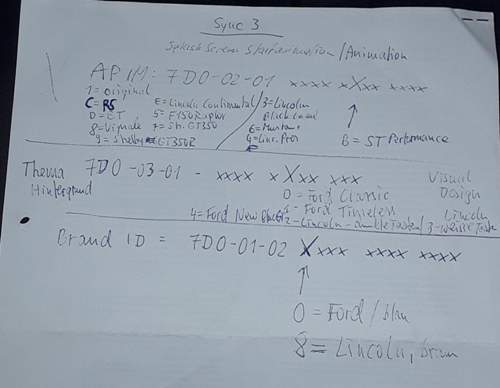 Sync 3
Splash Screen Startanimation / Animation
APIM: 7D0-02-01 xxxx xXxx xxx
1 = Original
C = RS E = Lincoln Continental / 3 = Lincoln
D = GT 5 = F150 Raptor Black Label
8 = Vignale 7 = Sh. GT350 6 = Mustang
9 = Shelby GT350R 4 = Linc. Pres B = ST Performance
Thema 7D0-03-01 - xxxx xXxx xxx Visual
Hintergrund 0 = Ford Classic Design
1 - Ford Timeless Lincoln
4 = Ford New 2 - Lincoln - dunkle Tasten / 3 - Weisse Taste
Brand ID = 7D0-01-02 Xxxx xxxx xxxx
0 = Ford / blau
8 = Lincoln, braun